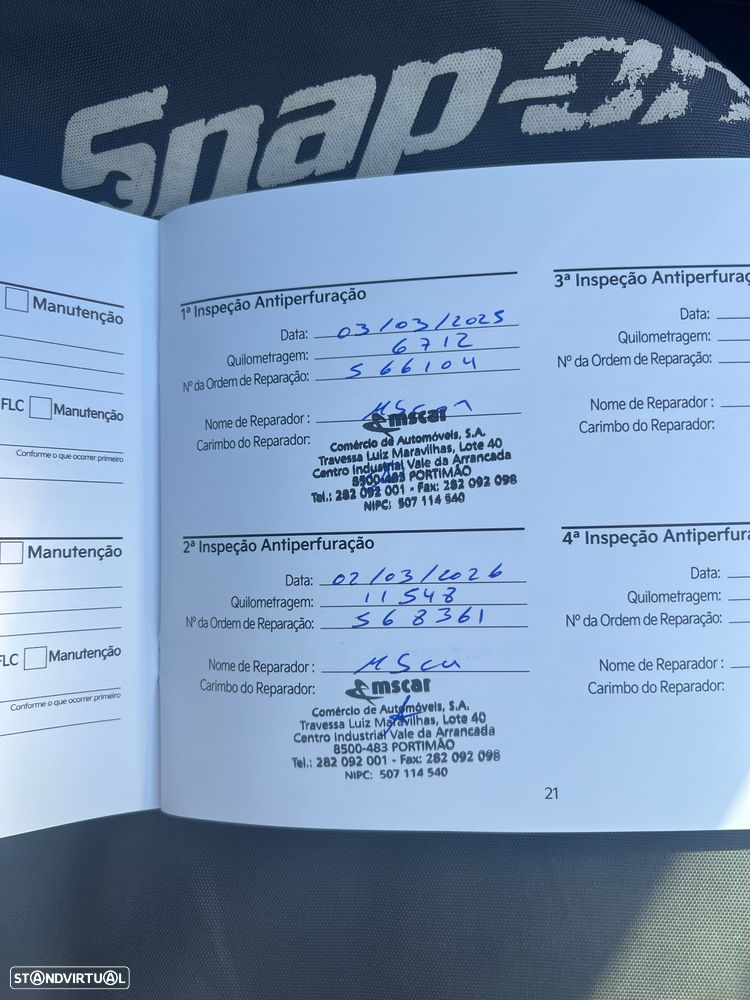 Snap-on
Manutenção
FLC Manutenção
Conforme o que ocorrer primeiro
Manutenção
FLC Manutenção
Conforme o que ocorrer primeiro
1ª Inspeção Antiperfuração
Data: 03/03/2025
Quilometragem: 6712
Nº da Ordem de Reparação: 566104
Nome de Reparador: MScar
Carimbo do Reparador:
mscar
Comércio de Automóveis, S.A.
Travessa Luiz Maravilhas, Lote 40
Centro Industrial Vale da Arrancada
8500-483 PORTIMÃO
Tel.: 282 092 001 - Fax: 282 092 098
NIPC: 507 114 540
2ª Inspeção Antiperfuração
Data: 02/03/2026
Quilometragem: 11548
Nº da Ordem de Reparação: 568361
Nome de Reparador: MScar
Carimbo do Reparador:
mscar
Comércio de Automóveis, S.A.
Travessa Luiz Maravilhas, Lote 40
Centro Industrial Vale da Arrancada
8500-483 PORTIMÃO
Tel.: 282 092 001 - Fax: 282 092 098
NIPC: 507 114 540
3ª Inspeção
Data:
Quilometragem:
Nº da Ordem de Reparação:
Nome de Reparador:
Carimbo do Reparador:
4ª Inspeção
Data:
Quilometragem:
Nº da Ordem de Reparação:
Nome de Reparador:
Carimbo do Reparador:
21
STANDVIRTUAL